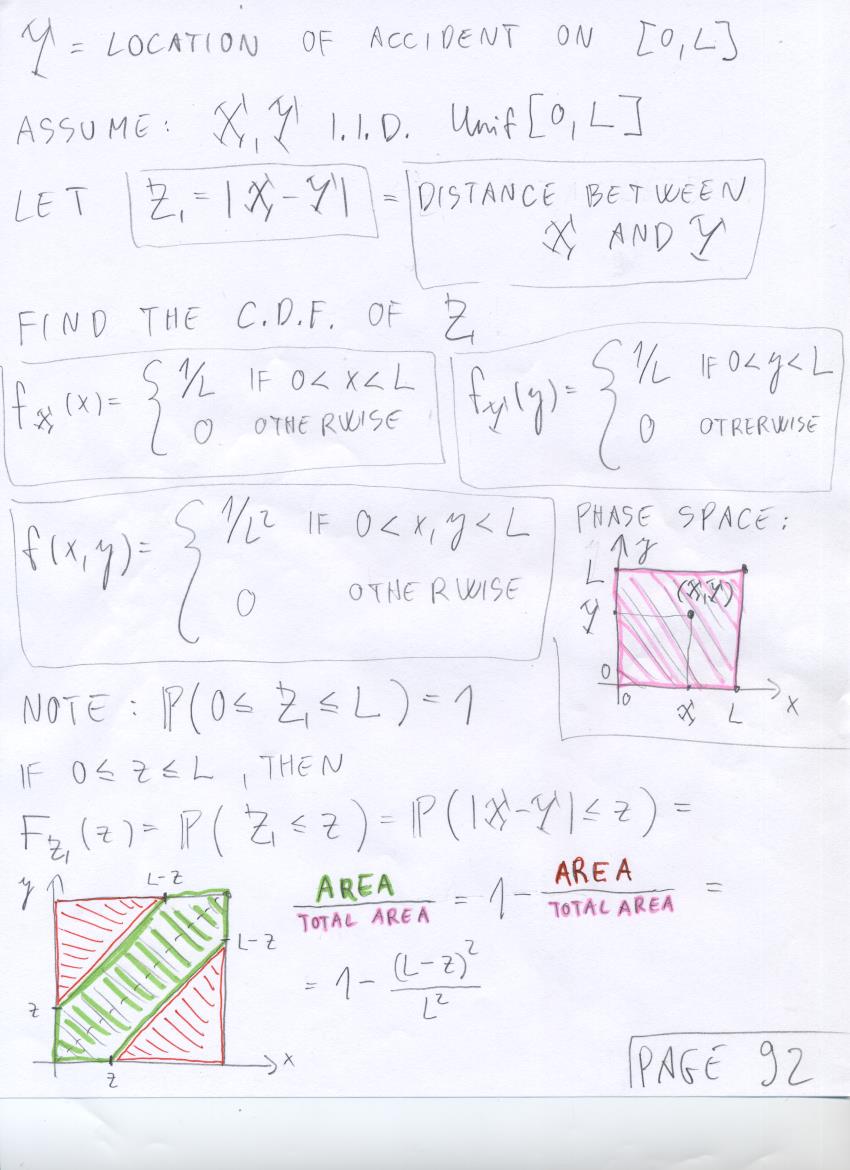 Y = LOCATION OF ACCIDENT ON [0,L]
ASSUME: X, Y I.I.D. Unif [0, L]
LET Z = |X - Y| = DISTANCE BETWEEN
X AND Y
FIND THE C.D.F. OF Z
f_X (x) = { 1/L IF 0 < x < L
0 OTHERWISE
f_Y (y) = { 1/L IF 0 < y < L
0 OTRERWISE
f(x,y) = { 1/L² IF 0 < x, y < L
0 OTHERWISE
PHASE SPACE:
y
L
(X,Y)
Y
0
0 X L x
NOTE: ℙ(0 ≤ Z ≤ L) = 1
IF 0 ≤ z ≤ L, THEN
F_Z (z) = ℙ(Z ≤ z) = ℙ(|X-Y| ≤ z) =
y L-z
AREA / TOTAL AREA = 1 - AREA / TOTAL AREA =
L-z
= 1 - (L-z)² / L²
z
z x
PAGE 92